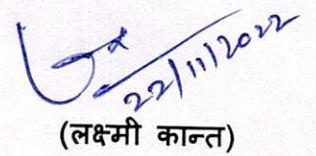 22/11/2022
(लक्ष्मी कान्त)